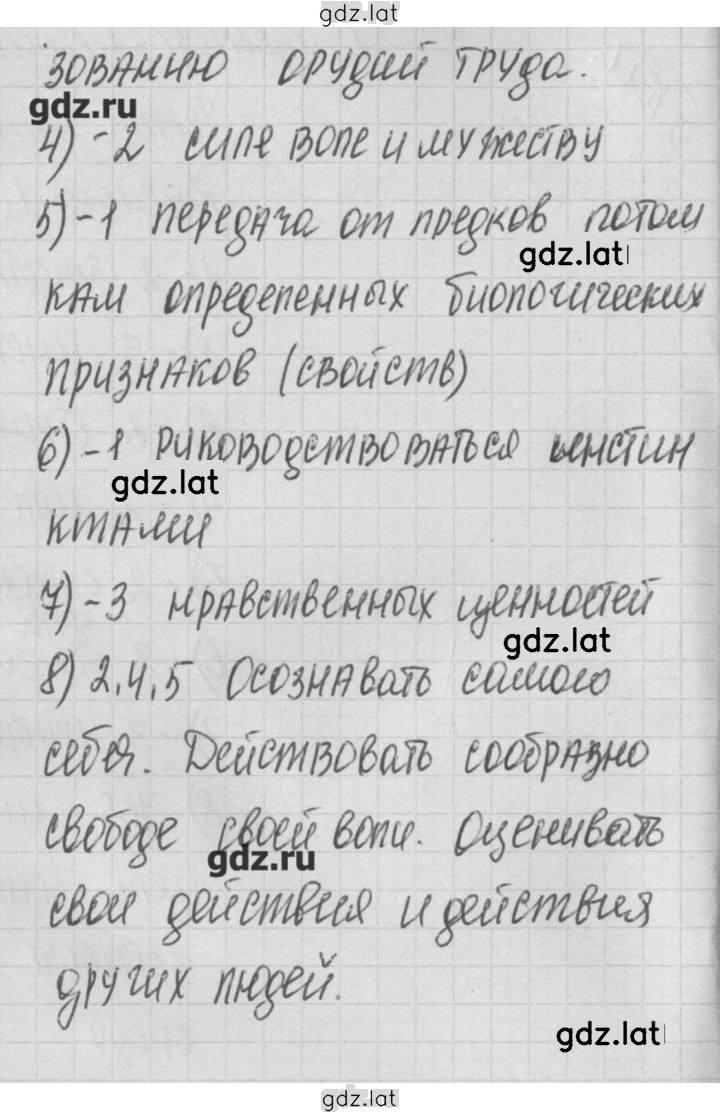 gdz.lat
зованию орудий труда.
gdz.ru
4) -2 силе воле и мужеству
5) -1 передача от предков потом
gdz.lat
кам определенных биологических
признаков (свойств)
6) -1 руководствоваться инстин
gdz.lat
ктами
7) -3 нравственных ценностей
gdz.lat
8) 2,4,5 Осознавать самого
себя. Действовать сообразно
свободе своей воли. Оценивать
gdz.ru
свои действия и действия
других людей.
gdz.lat
gdz.lat